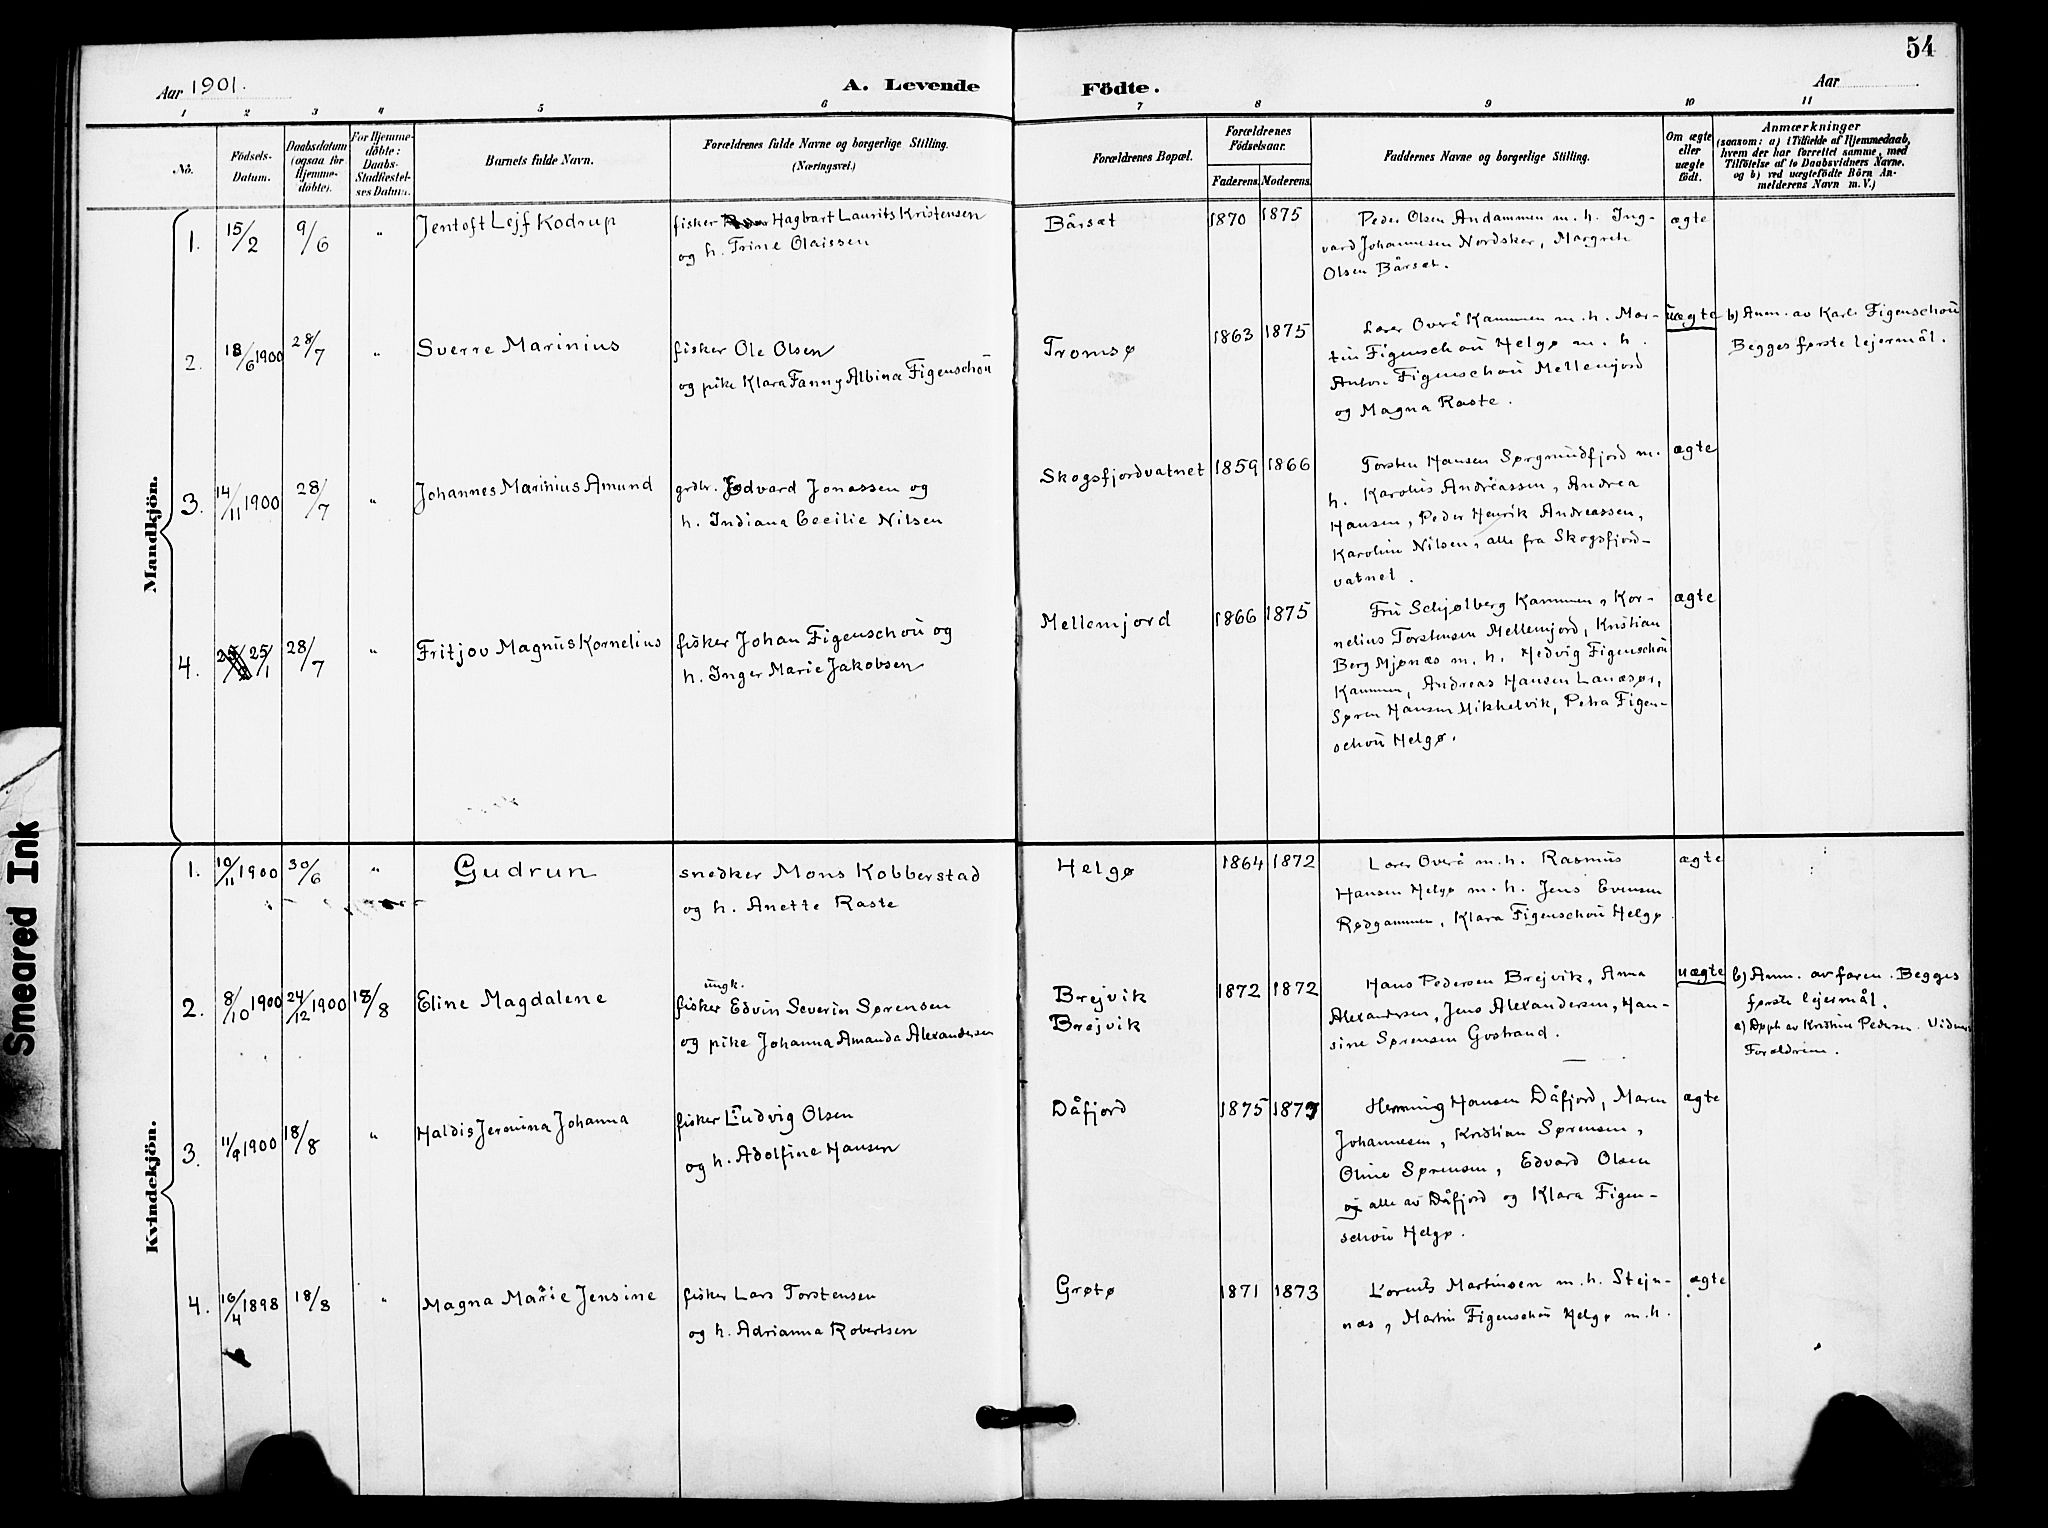 54
Aar 1901.
A. Levende
Födte.
Aar
1 2 3 4 5 6 7 8 9 10 11
No.
Födsels-
Datum.
Daabsdatum
(ogsaa for
Hjemme-
döbte).
For Hjemme-
döbte:
Daabs-
Stadfæstel-
ses Datum.
Barnets fulde Navn.
Forældrenes fulde Navne og borgerlige Stilling.
(Næringsvei.)
Forældrenes Bopæl.
Forældrenes
Födselsaar.
Faderens. Moderens.
Faddernes Navne og borgerlige Stilling.
Om ægte
eller
uægte
födt.
Anmærkninger
(saasom: a) i Tilfælde af Hjemmedaab,
hvem der har forrettet samme, med
Tilföielse af to Daabsvidners Navne.
og b) ved uægtefödte Börn An-
melderens Navn m. V.)
Mandkjön.
1. 15/2 9/6 " Jentoft Lejf Kodrup
fisker Hagbart Laurits Kristensen
og h. Trine Olaissen
Bårsæt 1870 1875
Peder Olsen Andammen m. h. Ing-
vard Johannesen Nordskar, Margrete
Olsen Bårsæt.
ægte
2. 18/6 1900 28/7 " Sverre Marinius
fisker Ole Olsen
og pike Klara Fanny Albina Figenschou
Tromsø 1863 1875
Lærer Overå Kammen m. h. Mar-
tin Figenschou Helgø m. h.
Anton Figenschou Mellemjord
og Magna Raste.
uægte
b) Anm. av Karl Figenschou
Begges første lejermål.
3. 14/11 1900 28/7 " Johannes Marinius Amund
grdbr. Edvard Jonassen og
h. Indiana Cecilie Nilsen
Skogsfjordvatnet 1859 1866
Torsten Hansen Sørgrundfjord m.
h. Karolus Andreassen, Andrea
Hansen, Peder Henrik Andreassen,
Karoline Nilsen, alle fra Skogsfjord-
vatnet.
ægte
4. 25/1 28/7 " Fritjov Magnus Kornelius
fisker Johan Figenschou og
h. Inger Marie Jakobsen
Mellemjord 1866 1875
Fru Schjølberg Kammen, Kor-
nelius Torstensen Mellemjord, Kristian
Berg Mjønæs m. h. Hedvig Figenschou
Kammen, Andreas Hansen Lanæsør,
Søren Hansen Mikkelvik, Petra Figen-
schou Helgø.
ægte
Kvindekjön.
1. 10/11 1900 30/6 " Gudrun
snedker Mons Kobberstad
og h. Anette Raste
Helgø 1864 1872
Lærer Overå m. h. Rasmus
Hansen Helgø m. h. Jens Evensen
Rødgammen, Klara Figenschou Helgø
ægte
2. 8/10 1900 24/12 1900 18/8 Eline Magdalene
ungk.
fisker Edvin Severin Sørensen
og pike Johanna Amanda Alexandersen
Brejvik
Brejvik
1872 1872
Hans Pedersen Brejvik, Anna
Alexandersen, Jens Alexandersen, Han-
sine Sørensen Gvstrand.
uægte
b) Anm. av faren. Begges
første lejermål.
a) Døpt av Kristine Pedersn. Vidner
Forældrene.
3. 11/9 1900 18/8 " Haldis Jermina Johanna
fisker Ludvig Olsen
og h. Adolfine Hansen
Dåfjord 1875 1877
Henning Hansen Dåfjord, Maren
Johannesen, Kristian Sørensen,
Oline Sørensen, Edvard Olsen
og alle av Dåfjord og Klara Figen-
schou Helgø.
ægte
4. 16/4 1898 18/8 " Magna Marie Jensine
fisker Lars Torstensen
og h. Adrianna Robertsen
Grøtø 1871 1873
Lorents Martinsen m. h. Stejn-
næs, Martin Figenschou Helgø m. h.
ægte
Smeared Ink